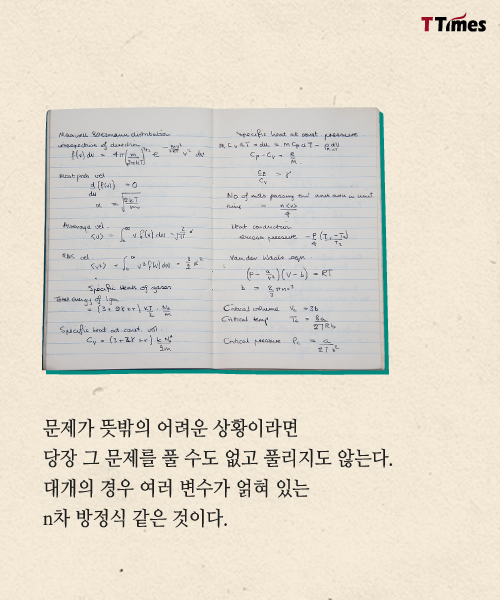 TTimes
Maxwell Boltzmann distribution
irrespective of direction
f(v)dv = 4π(m/2πkT)^3/2 e^-mv²/2kT v² dv
Most prob vel
d(f(v))/dv = 0
α = √(2kT/m)
Average vel.
<v> = ∫₀^∞ v f(v) dv =
RMS vel.
<v²> = ∫₀^∞ v² f(v) dv = 3/2 α²
Specific heats of gases
Total energy of 1gm
Specific heat at const. vol
Specific heat at const pressure
Cp - Cv = R/M
Cp/Cv = γ
No of mols passing unit area in unit
time =
Heat conduction
pressure
Van der Waals eqn
(P - a/v²)(V - b) = RT
b = 2/3 πnσ³
Critical volume Vc = 3b
Critical temp Tc = 8a/27Rb
Critical pressure Pc = a/27b²
문제가 뜻밖의 어려운 상황이라면
당장 그 문제를 풀 수도 없고 풀리지도 않는다.
대개의 경우 여러 변수가 얽혀 있는
n차 방정식 같은 것이다.